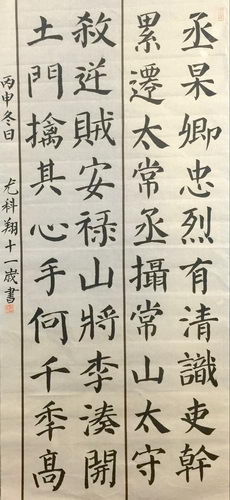 丞杲卿忠烈有清識吏幹
累遷太常丞攝常山太守
殺逆賊安祿山將李湊開
土門擒其心手何千秊髙
丙申冬日 尤科翔十一歲書